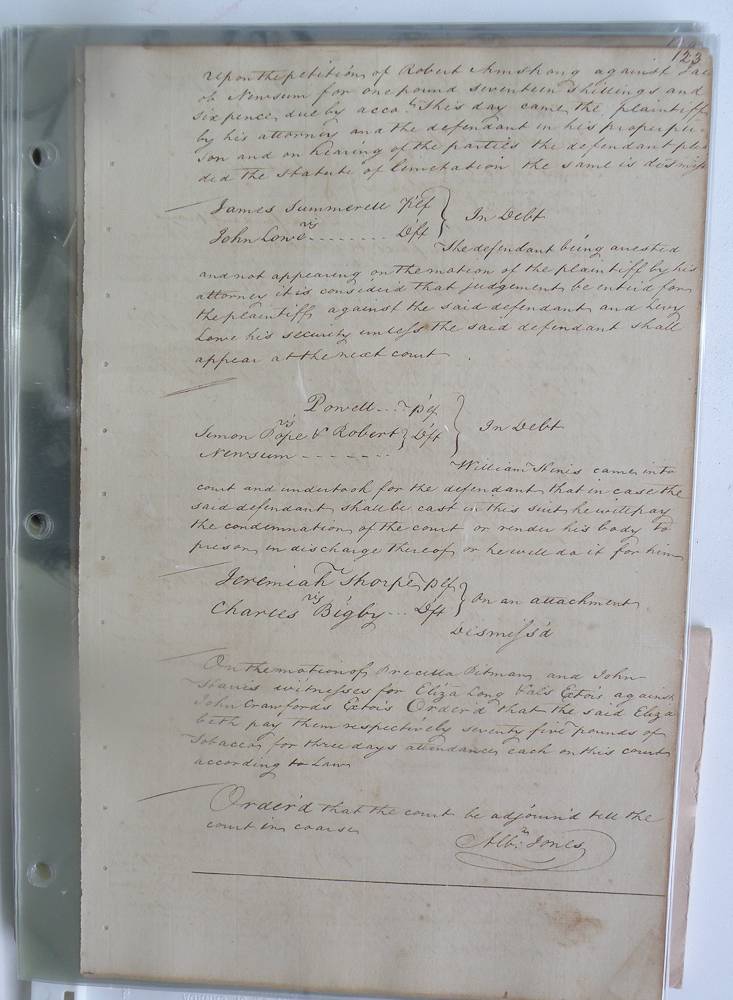 123
Upon the petition of Robert Armstrong against Jac
ob Newsum for one pound seventeen shillings and
sixpence due by acco.t This day came the plaintiff
by his attorney and the defendant in his proper per-
son and on hearing of the parties the defendant plea
ded the statute of limetation the same is dismiss
James Summerell Plet } In Debt
vs
John Lowe - - - - - - - - Dft
The defendant being arrested
and not appearing on the motion of the plaintiff by his
attorney it is consider'd that judgement be enter'd for
the plaintiff against the said defendant and Levy
Lowe his security unless the said defendant shall
appear at the next court
Powell - - - plf } In Debt
vs
Simon Pope & Robert } Dft
Newsum - - - - - - -
William Hines came into
court and undertook for the defendant that in case the
said defendant shall be cast in this suit he will pay
the condemnation of the court or render his body to
preson in discharge thereof or he will do it for him
Jeremiah Thorpe plf } On an attachment
vs
Charles Bigby - - - Dft
Dismiss'd
On the motion of Precilla Pitman and John
witnesses for Eliza Long &als Extois against
John Crawfords Extois Order'd that the said Eliza
beth pay them respectively seventy five pounds of
Tobacco for three days attendance each on this court
according to Law
Order'd that the court be adjourn'd till the
court in coarse
Albn. Jones